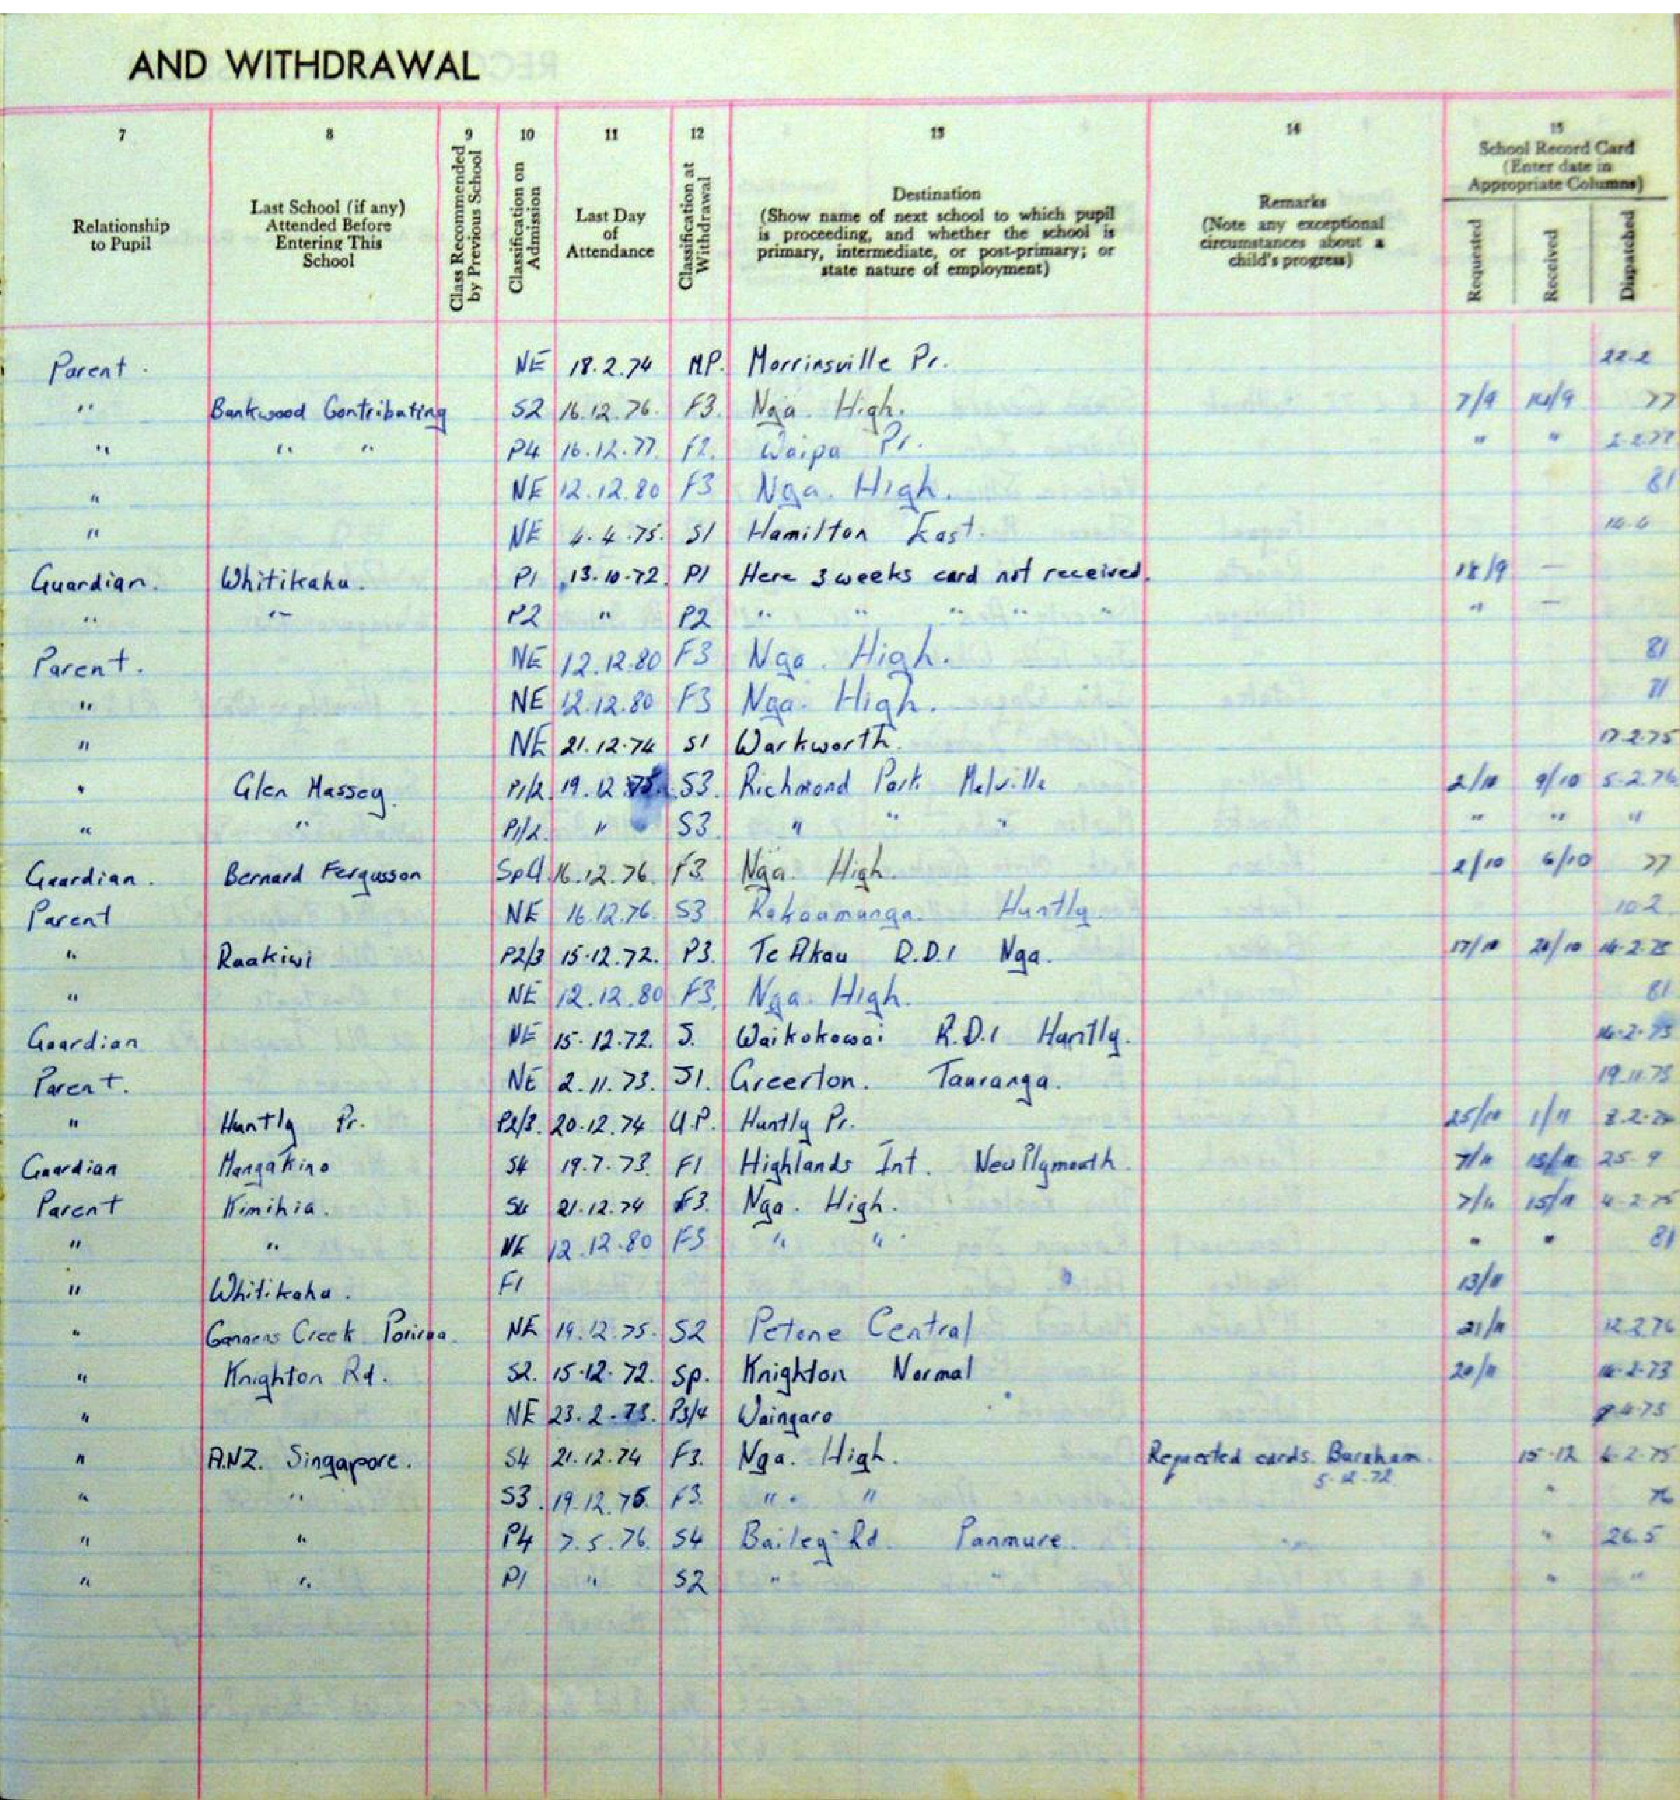 AND WITHDRAWAL
7 8 9 10 11 12 13 14 15
Relationship to Pupil
Last School (if any) Attended Before Entering This School
Class Recommended by Previous School
Classification on Admission
Last Day of Attendance
Classification at Withdrawal
Destination (Show name of next school to which pupil is proceeding, and whether the school is primary, intermediate, or post-primary; or state nature of employment)
Remarks (Note any exceptional circumstances about a child's progress)
School Record Card (Enter date in Appropriate Columns)
Requested Received Dispatched
Parent. NE 18.2.74 MP. Morrinsville Pr. 22.2
" Bankwood Contributing S2 16.12.76. F3. Nga. High. 7/9 14/9 77
" " " P4 16.12.77. F2. Waipa Pr. " "
" NE 12.12.80 F3 Nga. High. 81
" NE 4.4.75. S1 Hamilton East.
Guardian. Whitikahu. P1 13.10.72. P1 Here 3 weeks card not received. 18/9 —
" " P2 " P2 " " " " " " —
Parent. NE 12.12.80 F3 Nga. High. 81
" NE 12.12.80 F3 Nga. High.
" NE 21.12.74 S1 Warkworth. 17.2.75
" Glen Massey. P1/2. 19.12.75. S3. Richmond Park Melville 2/10 9/10 5.2.76
" " P1/2. " S3 " " " " " "
Guardian. Bernard Fergusson SpCl. 16.12.76. F3 Nga. High. 2/10 6/10 77
Parent NE 16.12.76. S3 Rakaumanga. Huntly 10.2
" Raakiwi P2/3 15.12.72. P3. Te Akau R.D.1 Nga. 17/10 20/10
" NE 12.12.80 F3. Nga. High. 81
Guardian NE 15.12.72. J. Waikokowai R.D.1 Huntly. 14.2.73
Parent. NE 2.11.73. J1. Greerton. Tauranga. 19.11.73
" Huntly Pr. P2/3. 20.12.74 U.P. Huntly Pr. 25/10 1/11
Guardian Mangakino S4 19.7.73. F1 Highlands Int. New Plymouth. 7/11 15/11 25.9
Parent Kimihia. S4 21.12.74 F3. Nga. High. 7/11 15/11 4.2.75
" " NE 12.12.80 F3 " " " " 81
" Whitikahu. F1 13/11
" Cannons Creek Porirua. NE 19.12.75. S2 Petone Central 21/11 12.2.76
" Knighton Rd. S2. 15.12.72. Sp. Knighton Normal 20/11 14.2.73
" NE 23.2.73. P3/4 Waingaro
" A.N.Z. Singapore. S4 21.12.74 F3. Nga. High. Requested cards. 5.12.72 15.12
" " S3. 19.12.75. F3. " " " 76
" " P4 7.5.76. S4 Bailey Rd. Panmure. " 26.5
" " P1 " S2 " " " "